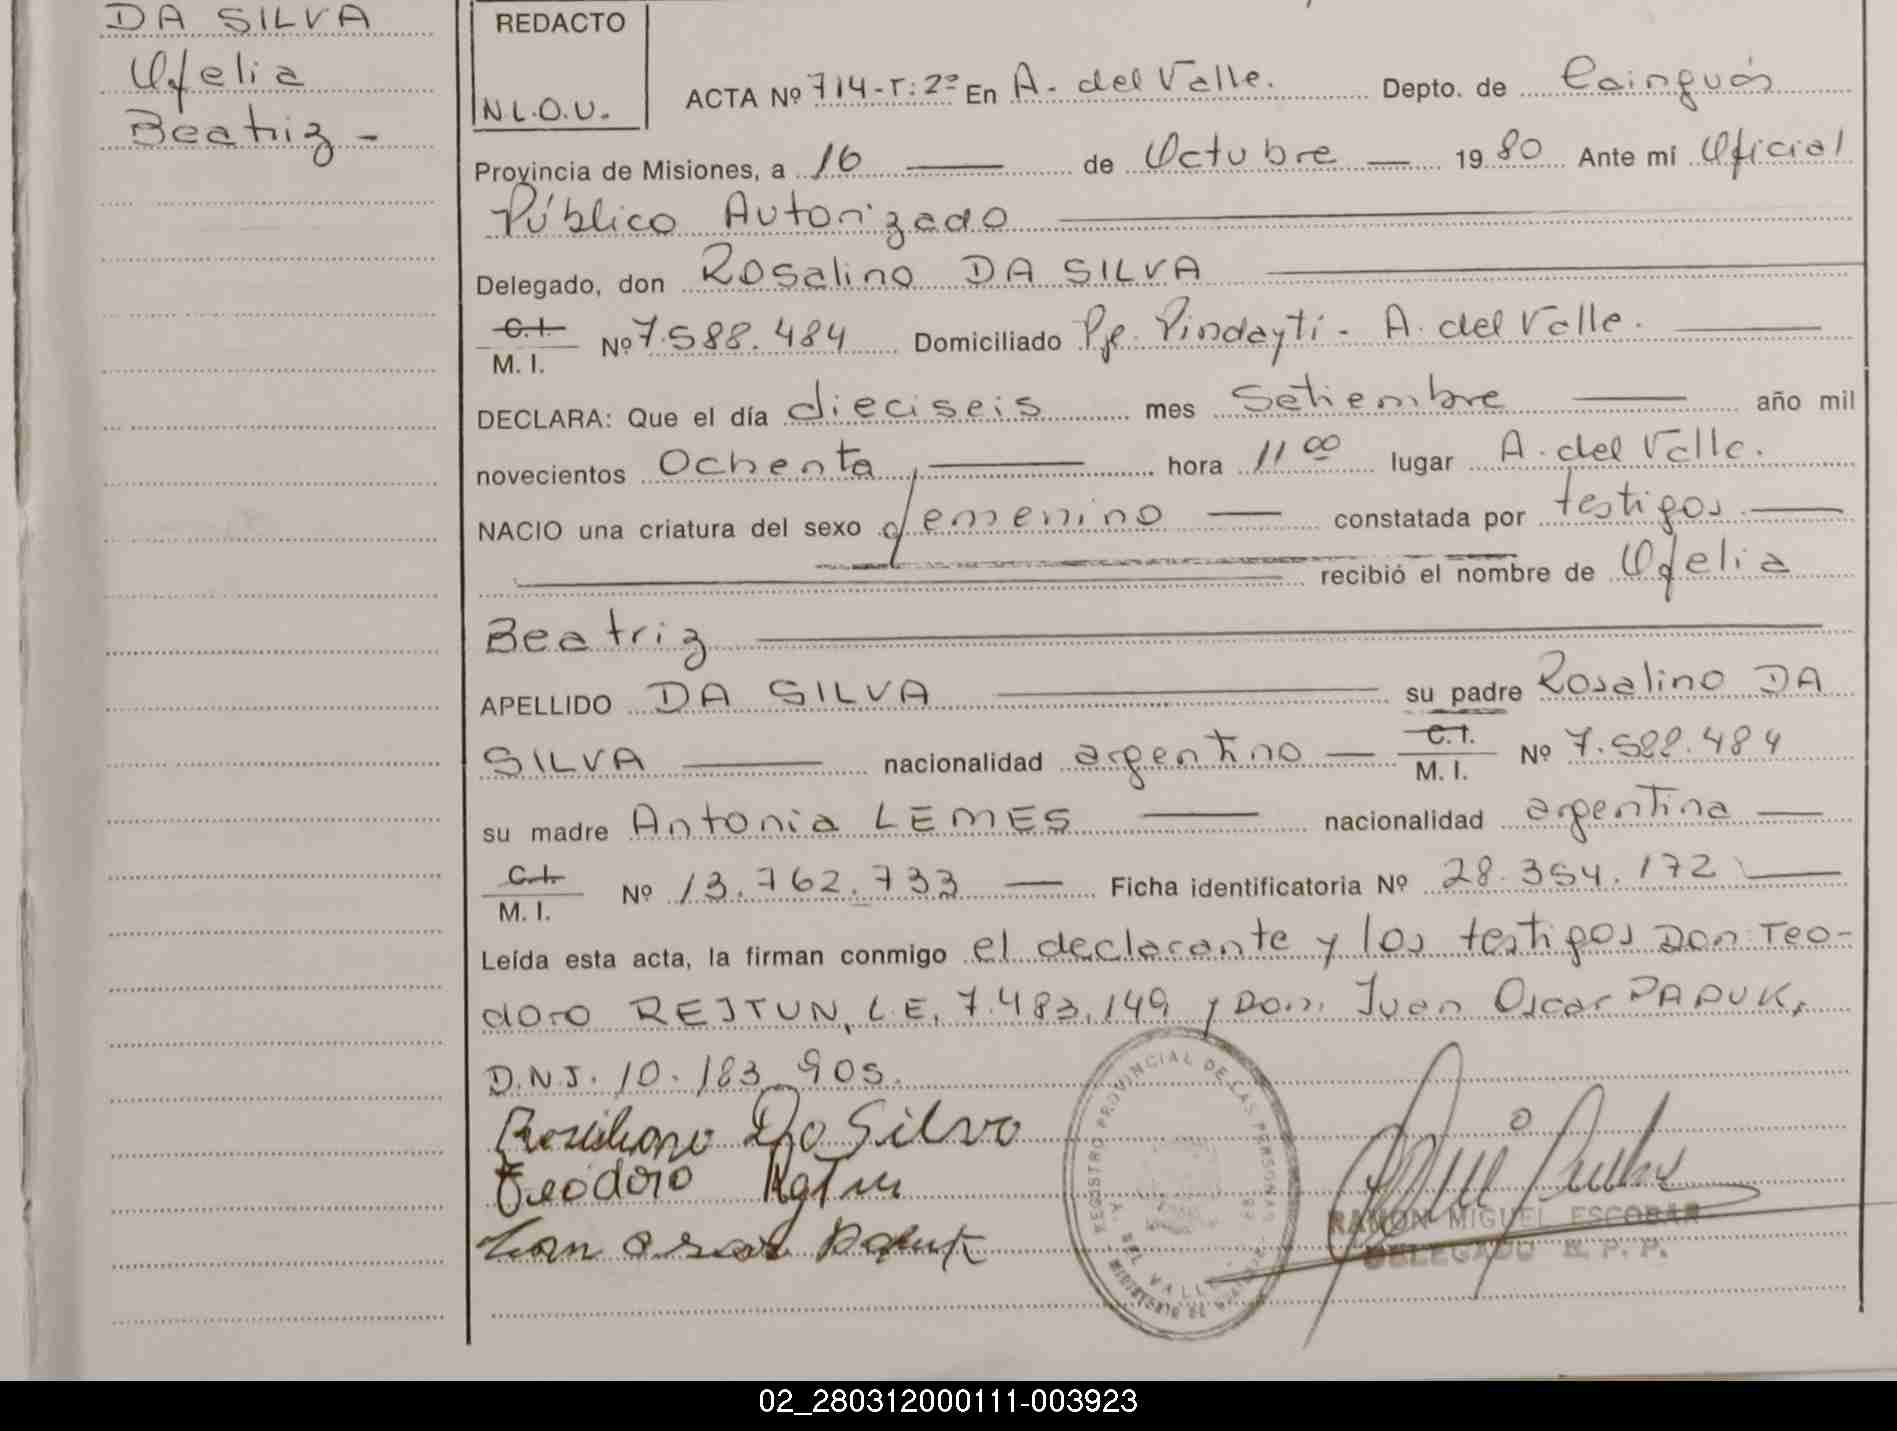 DA SILVA
Ofelia
Beatriz -
REDACTO
N.L.O.U.
ACTA Nº 714-T:2º En A. del Valle. Depto. de Cainguás
Provincia de Misiones, a 16 de Octubre 1980 Ante mí Oficial
Público Autorizado
Delegado, don Rosalino DA SILVA
C.I.
M. I. Nº 7.588.484 Domiciliado Pje. Pindayti - A. del Valle.
DECLARA: Que el día dieciseis mes Setiembre año mil
novecientos Ochenta hora 11 00 lugar A. del Valle.
NACIO una criatura del sexo femenino constatada por testigos
recibió el nombre de Ofelia
Beatriz
APELLIDO DA SILVA su padre Rosalino DA
SILVA nacionalidad argentino C.I. M. I. Nº 7.588.484
su madre Antonia LEMES nacionalidad argentina
C.I.
M. I. Nº 13.762.733 Ficha identificatoria Nº 28.354.172
Leída esta acta, la firman conmigo el declarante y los testigos Don Teo-
doro REJTUN, L.E. 7.483.149 y Don Juan Oscar PAPUK,
D.N.J. 10.183.905.
Da Silva
Teodoro
REGISTRO PROVINCIAL DE LAS PERSONAS
A. DEL VALLE
RAMON MIGUEL ESCOBAR
DELEGADO R. P. P.
02_280312000111-003923